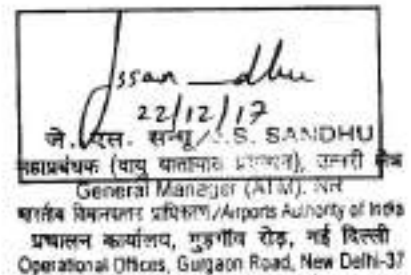 22/12/17
जे. एस. सन्धू / J.S. SANDHU
महाप्रबंधक (वायु यातायात प्रबन्धन), उत्तरी क्षेत्र
General Manager (ATM), NR
भारतीय विमानपत्तन प्राधिकरण/Airports Authority of India
प्रचालन कार्यालय, गुड़गाँव रोड़, नई दिल्ली
Operational Offices, Gurgaon Road, New Delhi-37